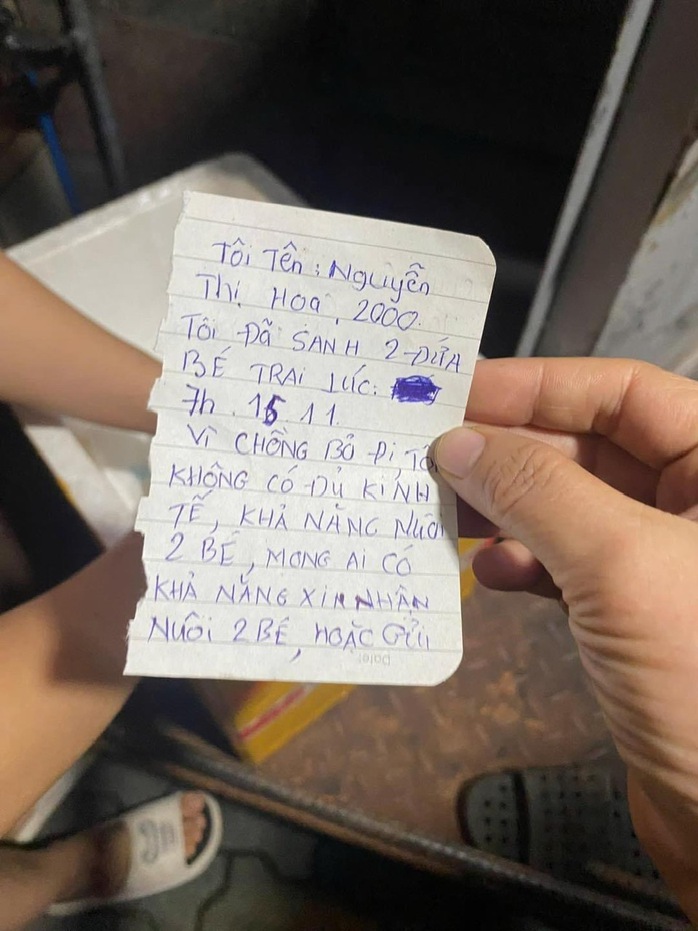 Tôi Tên : Nguyễn
Thị HOA, 2000.
TÔI ĐÃ SANH 2 ĐỨA
BÉ TRAI LÚC:
7h. 15.11.
Vì CHỒNG BỎ ĐI, TÔI
KHÔNG CÓ ĐỦ KINH
TẾ, KHẢ NĂNG NUÔI
2 BÉ, MONG AI CÓ
KHẢ NĂNG XIN NHẬN
NUÔI 2 BÉ, HOẶC GỬI